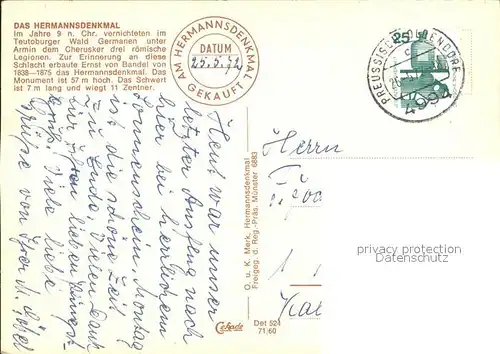 DAS HERMANNSDENKMAL
Im Jahre 9 n. Chr. vernichteten im
Teutoburger Wald Germanen unter
Armin dem Cherusker drei römische
Legionen. Zur Erinnerung an diese
Schlacht erbaute Ernst von Bandel von
1838—1875 das Hermannsdenkmal. Das
Monument ist 57 m hoch. Das Schwert
ist 7 m lang und wiegt 11 Zentner.
AM HERMANNSDENKMAL
DATUM
25.5.72
GEKAUFT
PREUSSISCH OLDENDORF
4994
25
Heut war unser
letzter Ausflug nach
hier bei herrlichem
Sonnenschein. Montag
ist die schöne Zeit
zu Ende. Vielen Dank
für lieben
Viele liebe
Grüße von Ihrer
O. u. K. Merk, Hermannsdenkmal
Freigeg. d. Reg.-Präs. Münster 6883
Cekade
Det 524
71,60
Herrn
privat
postcards
www.ansichtskarten-center.de